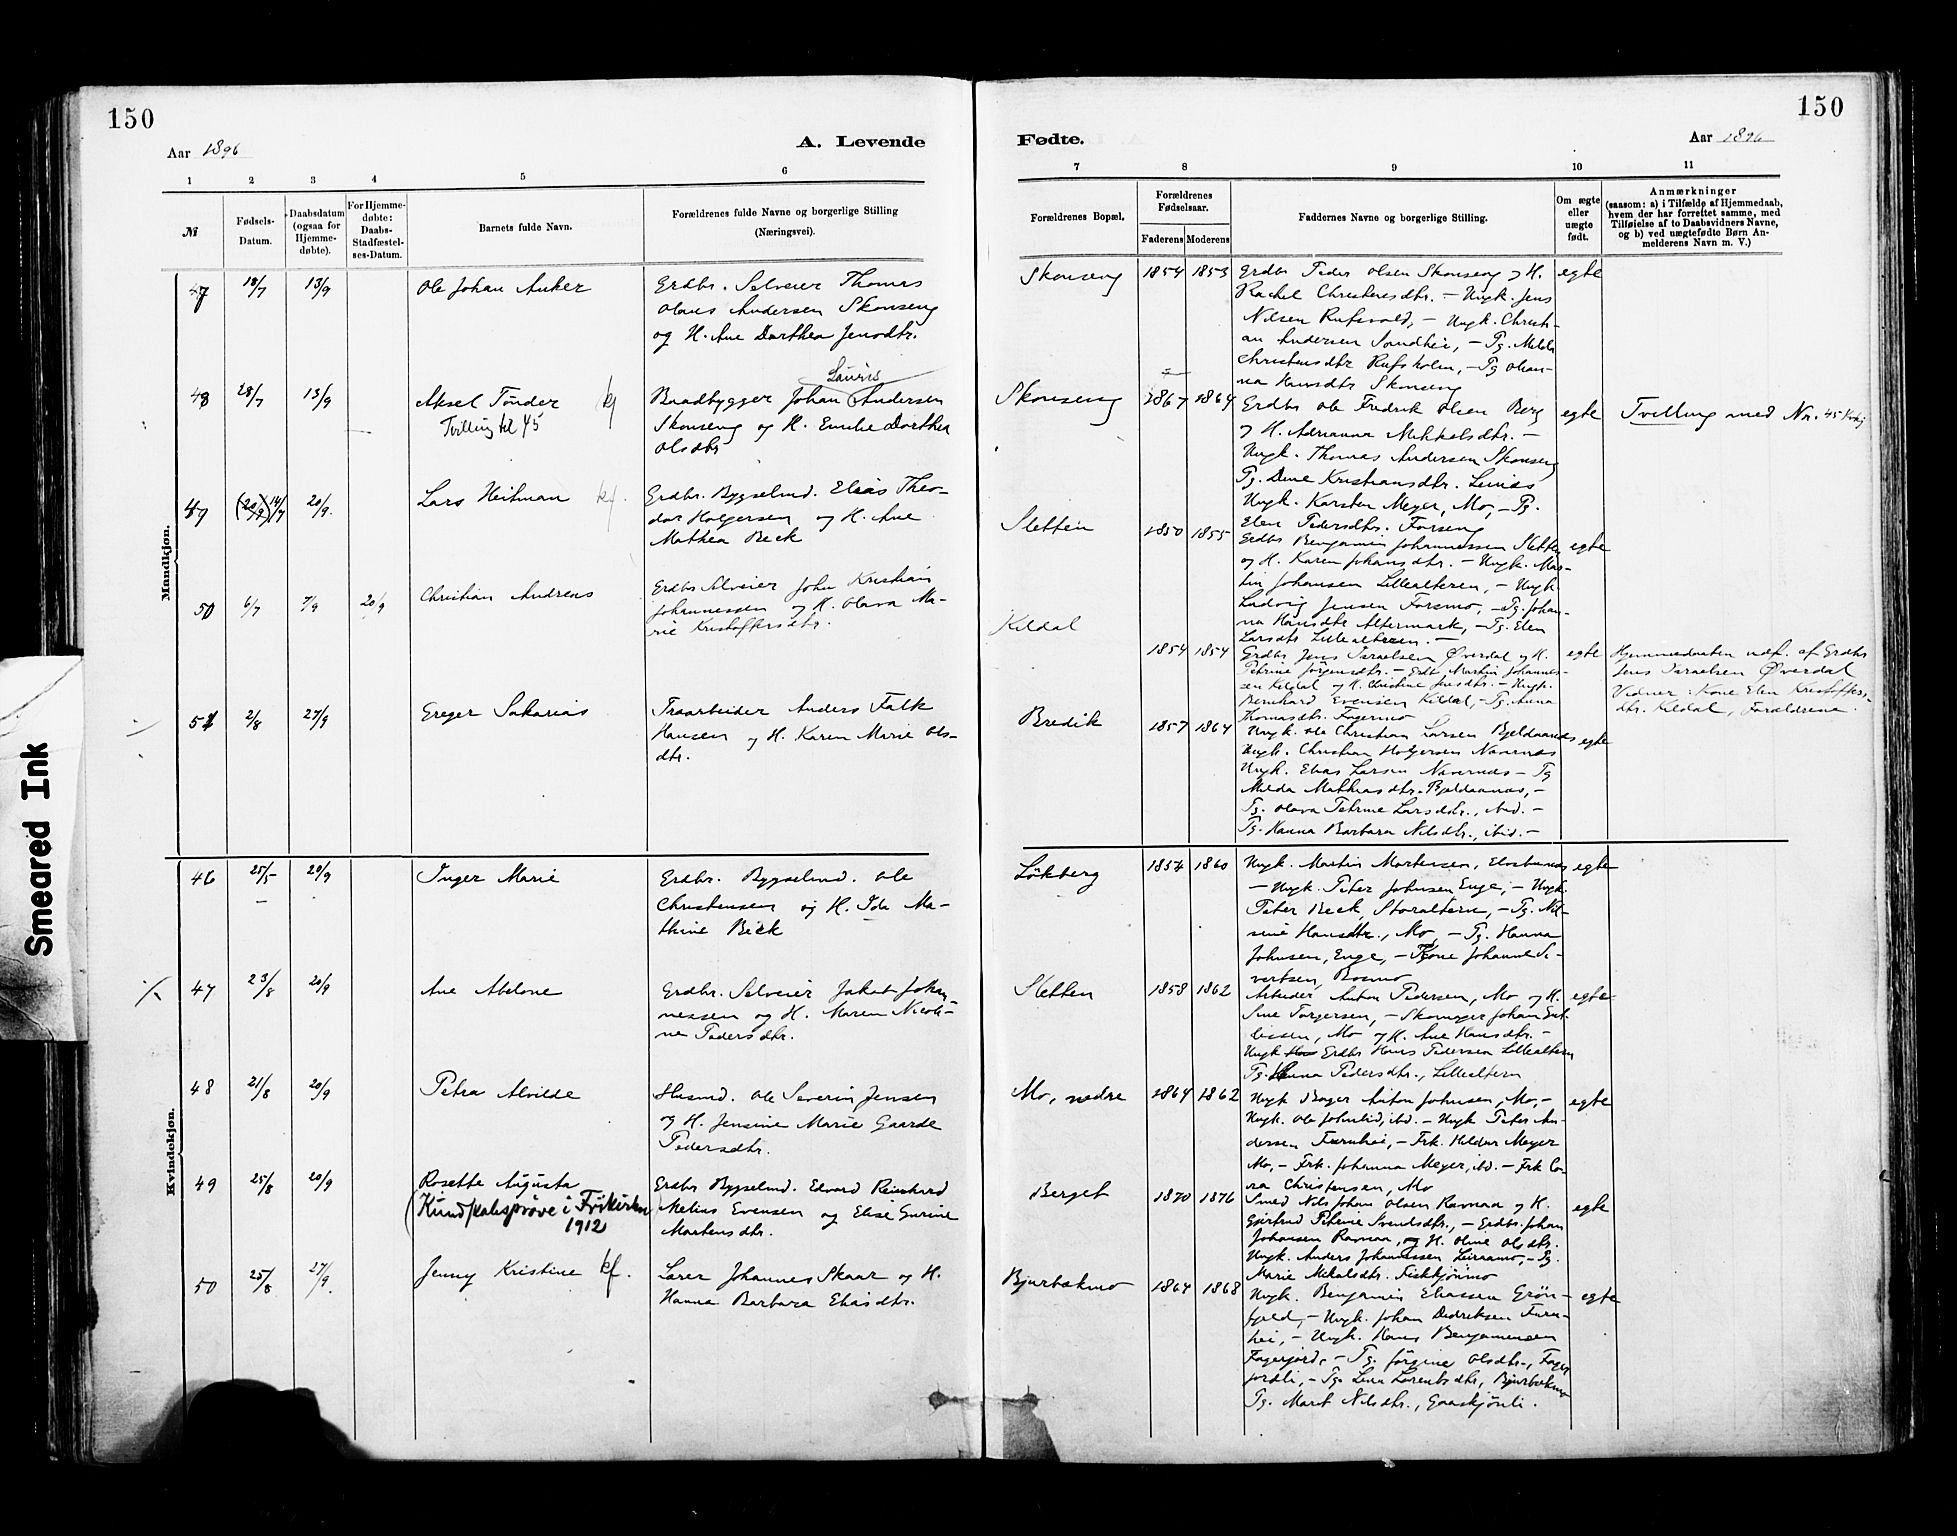 150
Aar 1896
A. Levende
1 2 3 4 5 6
№
Fødsels-
Datum.
Daabsdatum
(ogsaa for
Hjemme-
døbte).
For Hjemme-
døbte:
Daabs-
Stadfæstel-
ses-Datum.
Barnets fulde Navn.
Forældrenes fulde Navne og borgerlige Stilling
(Næringsvei).
Mandkjøn.
47 18/7 13/9 Ole Johan Anker
Grdbr. Selveier Thomas
Olaus Andersen Skonseng
og H. Ane Dorthea Jensdtr.
48 28/7 13/9 Aksel Tønder kf
Tvilling til 45
Lauris
Baadbygger Johan Andersen
Skonseng og H. Emilie Dorthea
Olsdtr
49 14/7 20/9. Lars Heitman kf.
Grdbr. Bygselmd. Elias Theo-
dor Holgersen og H. Ane
Mathea Beck
50 6/7 7/9 20/9 Christian Andreas
Grdbr Selveier John Kristian
Johannessen og H. Olava Ma-
rie Kristoffersdtr.
51 2/8 27/9 Greger Sakarias
Traarbeider Anders Falk
Hansen og H. Karen Marie Ols-
dtr.
Kvindekjøn.
46 25/5 20/9 Inger Marie
Grdbr. Bygselmd. Ole
Christensen og H. Ida Ma-
thine Beck
47 23/8 20/9 Ane Abelone
Grdbr. Selveier Jakob Johan-
nessen og H. Maren Nicoli-
ne Pedersdtr.
48 21/8 20/9 Petra Alvilde
Husmd. Ole Severin Jensen
og H. Jensine Marie Gaarde
Pedersdtr.
49 25/8 20/9 Rosette Augusta
(Kundskabsprøve i Frikirken
1912
Grdbr Bygselmd. Edvard Reinhard
Melius Evensen og Elise Gurine
Martensdtr.
50 25/8 27/9. Jenny Kristine kf.
Lærer Johannes Skaar og H.
Hanna Barbara Eliasdtr.
Smeared Ink
150
Fødte.
Aar 1896
7 8 9 10 11
Forældrenes Bopæl.
Forældrenes
Fødselsaar.
Faderens Moderens
Faddernes Navne og borgerlige Stilling.
Om ægte
eller
uægte
født.
Anmærkninger
(saasom: a) i Tilfælde af Hjemmedaab,
hvem der har forrettet samme, med
Tilføielse af to Daabsvidners Navne,
og b) ved uægtefødte Børn An-
melderens Navn m. V.)
Skonseng 1854 1853 Grdbr Peder Olsen Skonseng og H. egte
Rachel Christensdtr. – Ungk. Jens
Nilsen Rufsvold, – Ungk. Christi-
an Andersen Sandhei, – Pg. Milda
Christensdtr Rufsholm, – Pg Ohan-
na Hansdtr Skonseng
Skonseng 1867 1864 Grdbr Ole Fredrik Olsen Berg egte Tvilling med Nr. 45 Kvkj
og H. Adrianna Mikkelsdtr. –
Ungk. Thomas Andersen Skonseng
Pg. Dine Kristiansdtr.
Ungk. Karsten Meyer, Mo, – Pg.
Elen Pedersdtr. Forseng
Sletten 1850 1855 Grdbr Benjamin Johannessen Sletten egte
og H. Karen Johansdtr. – Ungk. Mar-
tin Johansen Lillealteren, – Ungk.
Ludvig Jensen Forsmo, – Pg. Johan-
na Hansdtr Altermark, – Pg. Elen
Larsdtr Lillealteren. –
Kildal 1854 1854 Grdbr Jens Israelsen Øverdal og H. egte
Petrine Jørgensdtr. – Grdbr Martin Johannes-
sen Kildal og H. Christine Jensdtr. – Ungk.
Bernhard Evensen Kildal, – Pg. Anna
Thomasdtr. Fagermo
Hjemmedaaben udf. af Grdbr
Jens Israelsen Øverdal
Vidner: Kone Elen Kristoffers-
dtr. Kildal, Forældrene.
Bredik 1857 1864 Ungk. Ole Christian Larsen Bjeldaanes egte
Ungk. Christian Holgersen Navernes
Ungk. Elias Larsen Navernes – Pg
Milda Mathiasdtr. Bjeldaanes, –
Pg. Olava Petrine Larsdtr., ibid. –
Pg. Hanna Barbara Nilsdtr., ibid. –
Løkberg 1857 1860 Ungk. Martin Mortensen, egte
– Ungk. Peter Johnsen Enge, – Ungk.
Peter Beck, Storalteren, – Pg. Nil-
sine Hansdtr., Mo, – Pg. Hanna
Johnsen, Enge, – Kone Johanne Si-
vertsen, Bosmo
Sletten 1858 1862 Arbeider Anton Pedersen, Mo og H. egte
Sine Torgersen, – Skomager Johan
Mo og H. Ane Hansdtr. –
Ungk Grdbr Hans Pedersen Lillealteren
Pg. Anna Pedersdtr., Lillealtern
Mo, nedre 1864 1862 Ungk Bager Anton Johnsen, Mo, – egte
Ungk. Ole Johnlid, ibd. – Ungk Peter An-
dersen Furuhei, – Frk. Hildur Meyer
Mo, – Frk. Johanna Meyer, ibd. – Frk Co-
ra Christensen, Mo
Berget 1870 1876 Smed Nils Johan Olsen Ravnaa og H. egte
Gjertrud Petrine Svendsdtr., – Grdbr. Johan
Johansen Ravnaa, og H. Oline Olsdtr.
Ungk. Anders Johannessen Leiraamo, – Pg.
Marie Mikalsdtr. Fiskkjønmo
Bjurbækmo 1864 1868 Ungk. Benjamin Eliassen Grøn- egte
fjeld, – Ungk. Johan Dedriksen Furu-
hei, – Ungk. Hans Benjaminsen
Fagerjord, – Pg. Jørgine Olsdtr., Fager
jordli, – Pg. Lina Lorentsdtr, Bjurbækmo
Pg. Marit Nilsdtr., Gaaskjønli.